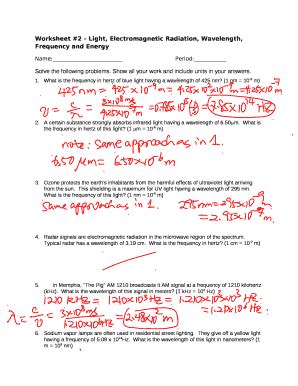 Worksheet #2 – Light, Electromagnetic Radiation, Wavelength,
Frequency and Energy
Name: Period:
Solve the following problems. Show all your work and include units in your answers.
1. What is the frequency in hertz of blue light having a wavelength of 425 nm? (1 nm = 10⁻⁹ m)
425 nm = 425 × 10⁻⁹ m = 4.25 × 10² × 10⁻⁹ m = 4.25 × 10⁻⁷ m
ν = c/λ = 3×10⁸ m/s / 4.25×10⁻⁷ m
2. A certain substance strongly absorbs infrared light having a wavelength of 6.50µm. What is
the frequency in hertz of this light? (1 µm = 10⁻⁶ m)
note: Same approach as in 1.
6.50 µm = 6.50×10⁻⁶ m
3. Ozone protects the earth's inhabitants from the harmful effects of ultraviolet light arriving
from the sun. This shielding is a maximum for UV light having a wavelength of 295 nm.
What is the frequency of this light? (1 nm = 10⁻⁹ m)
Same approach as in 1. 295 nm = 295×10⁻⁹ m
= 2.95×10⁻⁷ m.
4. Radar signals are electromagnetic radiation in the microwave region of the spectrum.
Typical radar has a wavelength of 3.19 cm. What is the frequency in hertz? (1 cm = 10⁻² m)
5. In Memphis, "The Pig" AM 1210 broadcasts it AM signal at a frequency of 1210 kilohertz
(kHz). What is the wavelength of this signal in meters? (1 kHz = 10³ Hz)
1210 kHz = 1210×10³ Hz = 1.210×10³×10³ Hz
= 1.21×10⁶ Hz
λ = c/ν = 3×10⁸ m/s / 1.210×10⁶ Hz = 2.48×10² m
6. Sodium vapor lamps are often used in residential street lighting. They give off a yellow light
having a frequency of 5.09 x 10¹⁴ Hz. What is the wavelength of this light in nanometers? (1
m = 10⁹ nm)